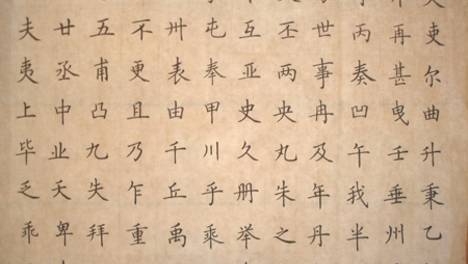 夫廿五不卅屯互丕世丙再吏
夷丞甫更表奉亚两事奏甚尔
上中凸且由甲史央冉凹曳曲
毕业九乃千川久丸及午壬升
乏夭失乍丘乎册朱年我垂秉
乖卑拜重禹乘举之丹半州乙